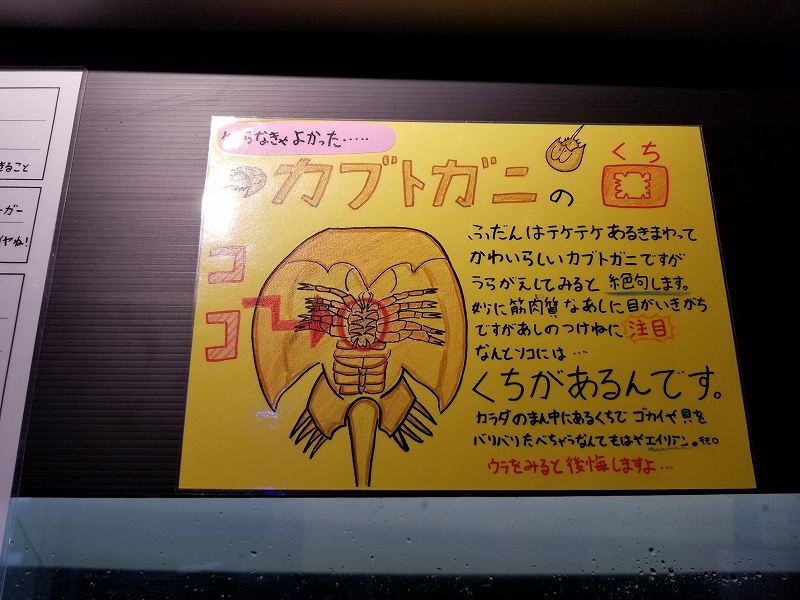 きること
ーガー
イヤね!
しらなきゃよかった・・・・・
カブトガニの
くち
口
ココ
ふだんはテケテケあるきまわって
かわいらしいカブトガニですが
うらがえしてみると絶句します。
妙に筋肉質なあしに目がいきがち
ですがあしのつけねに注目
なんとソコには…
くちがあるんです。
カラダのまん中にあるくちでゴカイや貝を
バリバリたべちゃうなんてもはやエイリアン。
ウラをみると後悔しますよ…